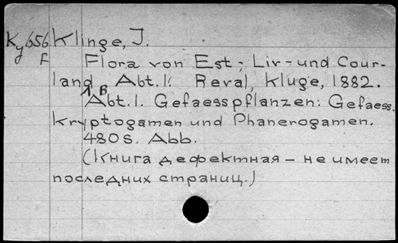 Ky656 Klinge, J.
f Flora von Est-, Liv- und Cour-
land Abt. 1. Reval, Kluge, 1882.
1, B
Abt. 1. Gefaesspflanzen: Gefaess-
kryptogamen und Phanerogamen.
480 s. Abb.
(Книга дефектная – не имеет
последних страниц.)